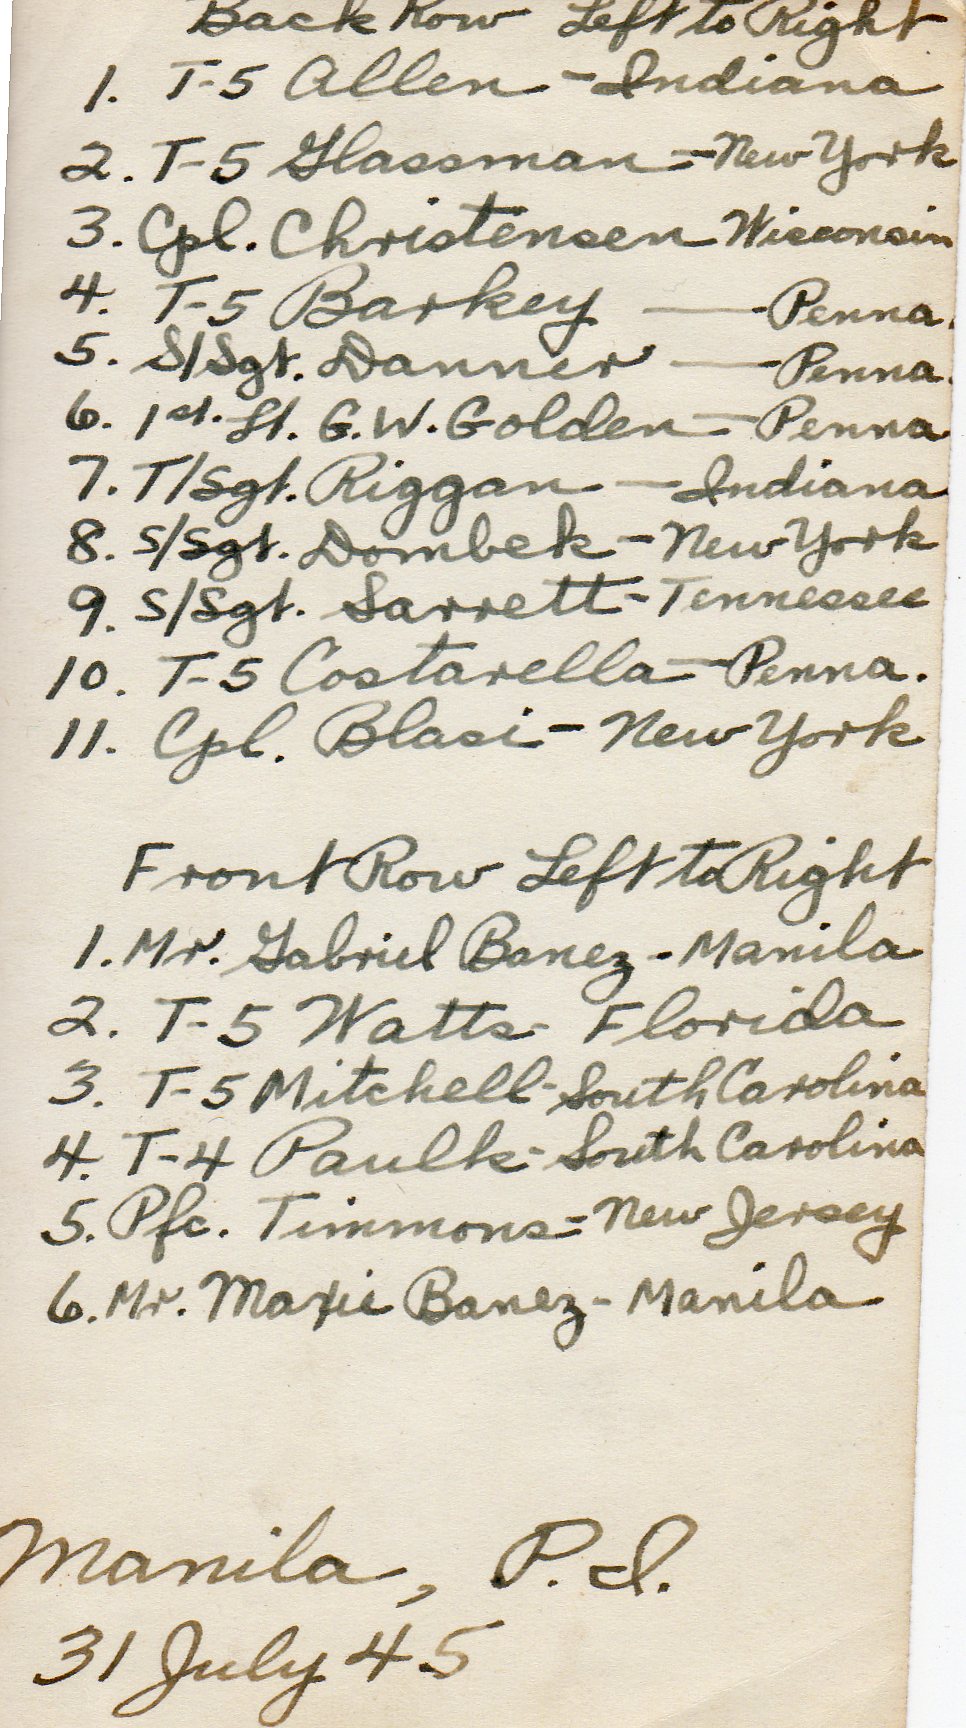 Back Row Left to Right
1. T-5 Allen - Indiana
2. T-5 Glassman - New York
3. Cpl. Christensen Wisconsin
4. T-5 Barkey — Penna.
5. S/Sgt. Danner — Penna.
6. 1st. Lt. G.W. Golden - Penna.
7. T/Sgt. Riggan - Indiana
8. S/Sgt. Dombek - New York
9. S/Sgt. Sarrett - Tennessee
10. T-5 Costarella - Penna.
11. Cpl. Blasi - New York
Front Row Left to Right
1. Mr. Gabriel Banez - Manila
2. T-5 Watts - Florida
3. T-5 Mitchell - South Carolina
4. T-4 Paulk - South Carolina
5. Pfc. Timmons - New Jersey
6. Mr. Maxie Banez - Manila
Manila, P.I.
31 July 45